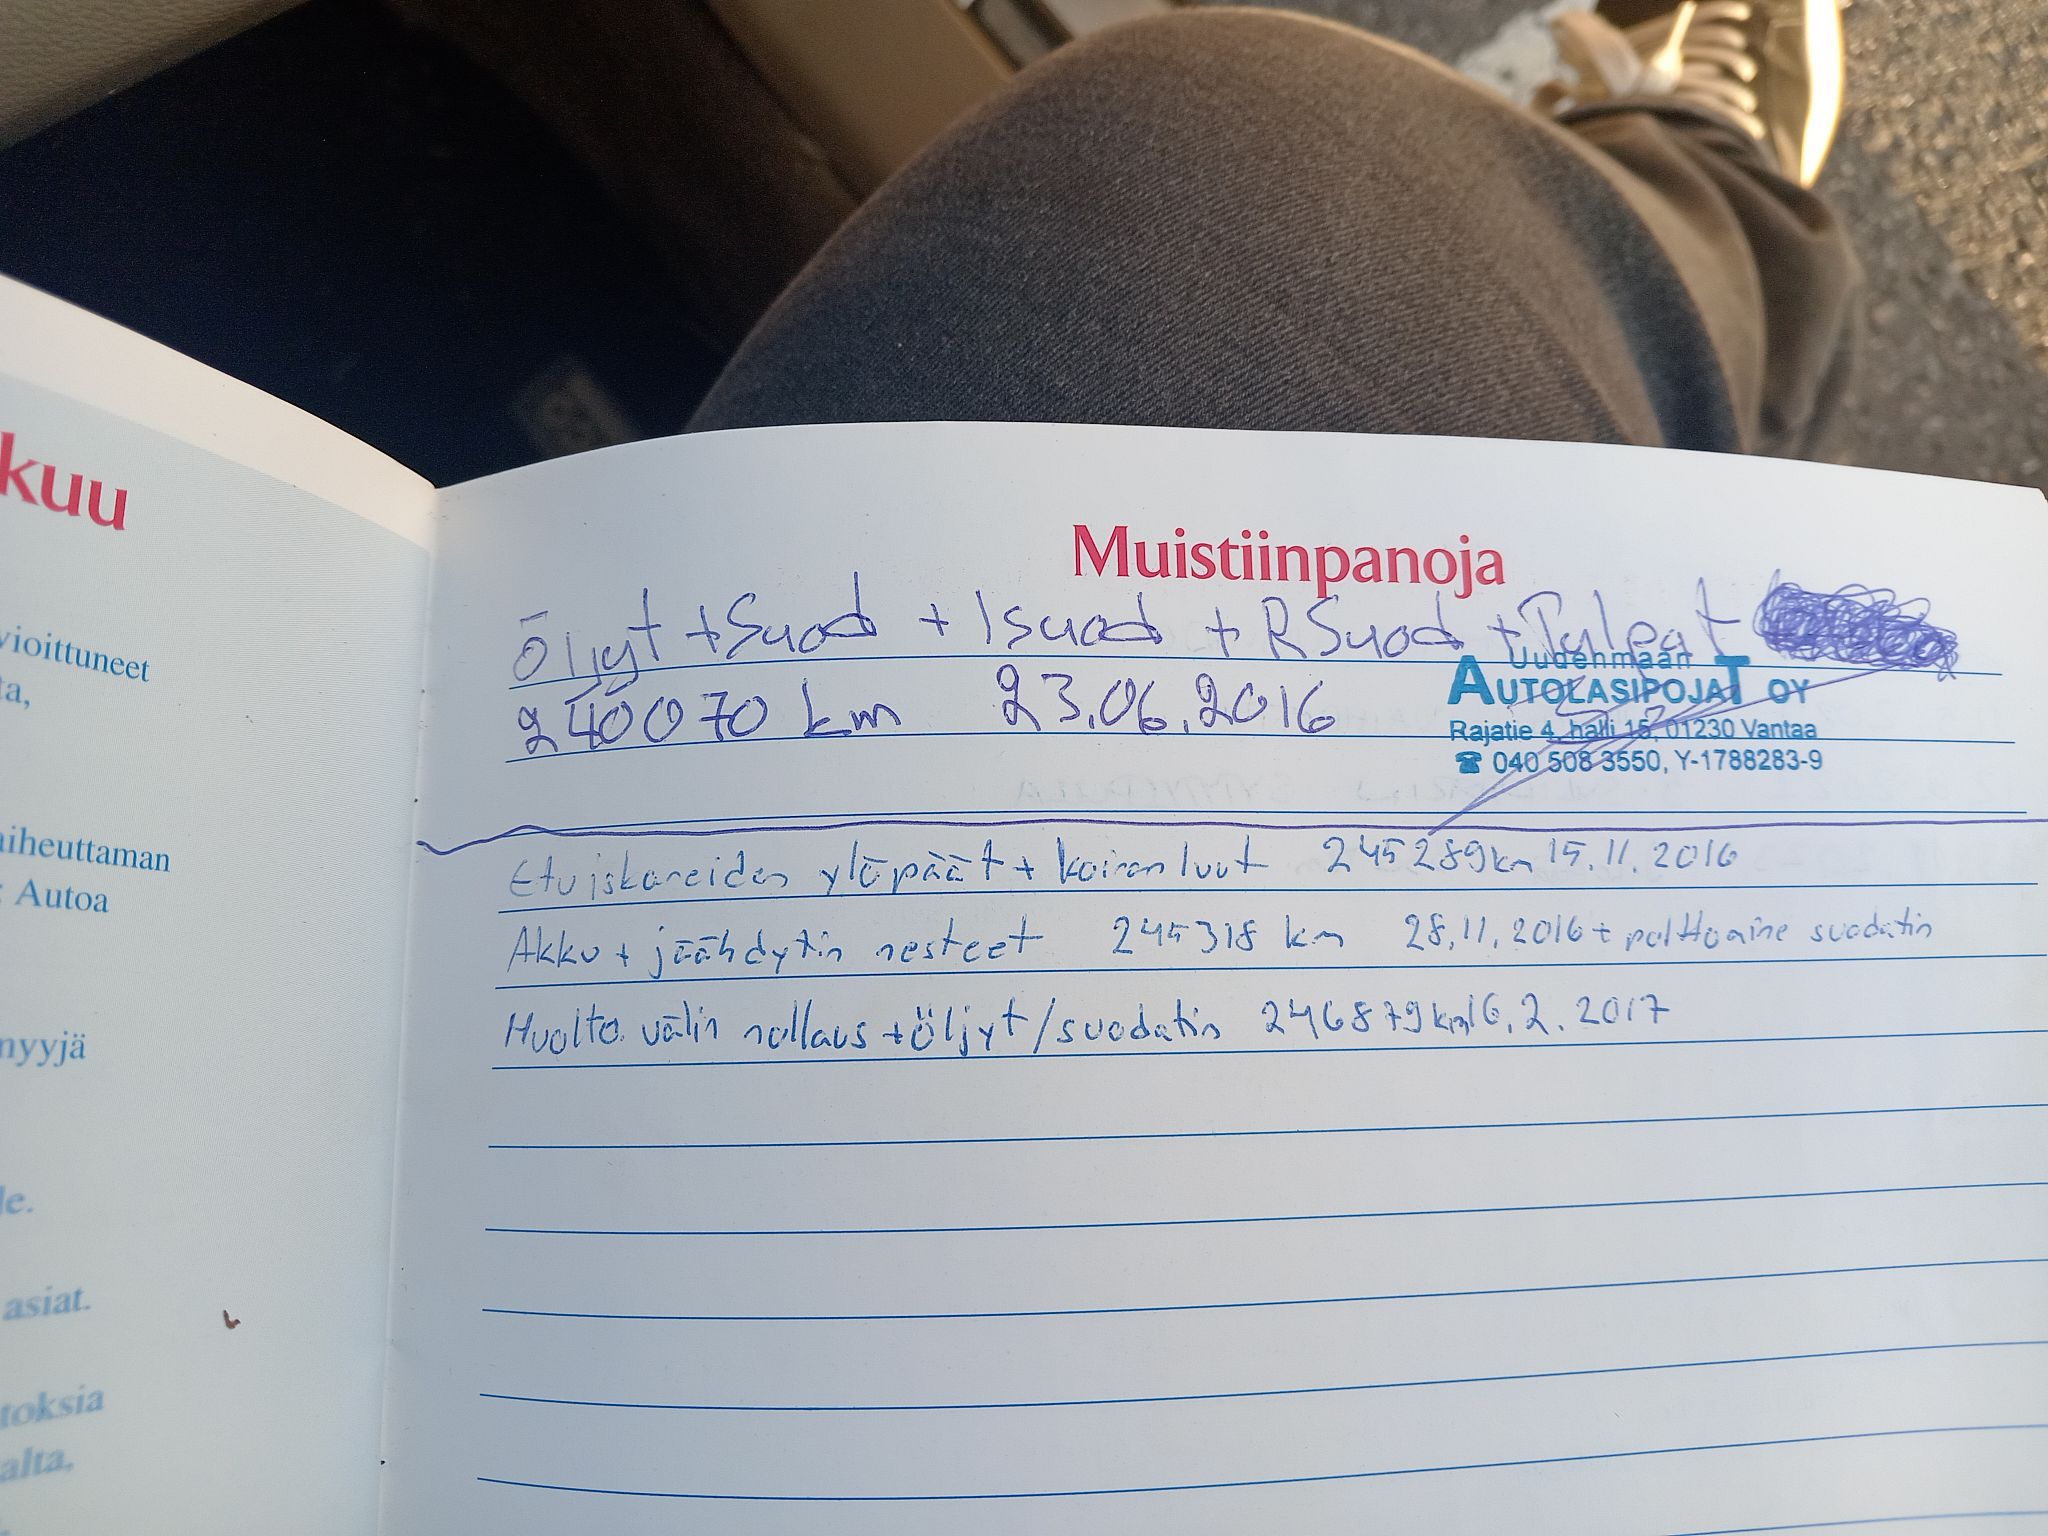 kuu
vioittuneet
ta,
aiheuttaman
: Autoa
myyjä
le.
asiat.
toksia
alta,
Muistiinpanoja
Öljyt + Suod + Isuod + RSuod + Tulpat
240070 km 23.06.2016
Uudenmaan
AUTOLASIPOJAT OY
Rajatie 4, halli 15, 01230 Vantaa
☎ 040 508 3550, Y-1788283-9
Etuiskareiden yläpäät + koiranluut 245289km 15.11.2016
Akku + jäähdytin nesteet 245318 km 28.11.2016 + polttoaine suodatin
Huolto välin nollaus + öljyt/suodatin 246879km 16.2.2017